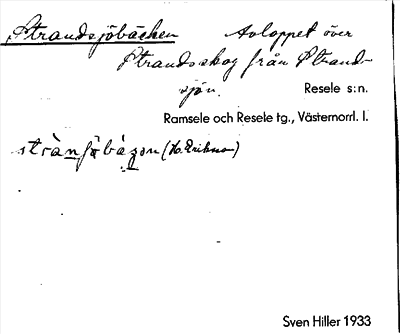 Strandsjöbäcken Avloppet över
Strandsskog från Strand-
sjön. Resele s:n.
Ramsele och Resele tg., Västernorrl. l.
(H. Erikns)
Sven Hiller 1933